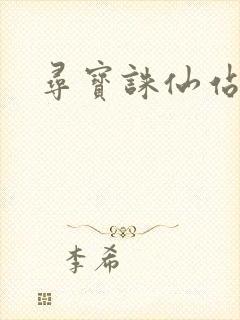 尋寶誅仙佔
李希